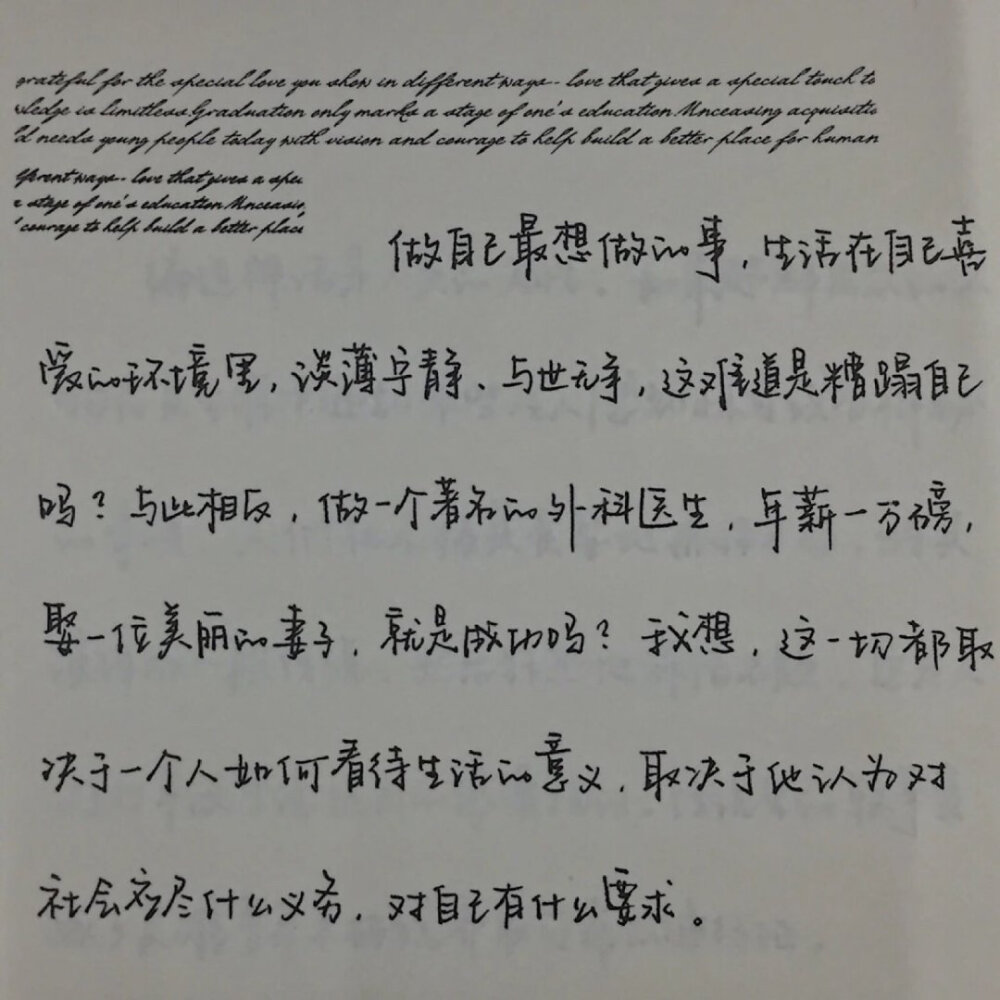 grateful for the special love you show in different ways-- love that gives a special touch to
wledge is limitless.Graduation only marks a stage of one's education.Unceasing acquisitio
ld needs young people today with vision and courage to help build a better place for human
fferent ways-- love that gives a spec
e stage of one's education.Unceasin
courage to help build a better place
做自己最想做的事，生活在自己喜
爱的环境里，淡薄宁静、与世无争，这难道是糟蹋自己
吗？与此相反，做一个著名的外科医生，年薪一万磅，
娶一位美丽的妻子，就是成功吗？我想，这一切都取
决于一个人如何看待生活的意义，取决于他认为对
社会应尽什么义务，对自己有什么要求。